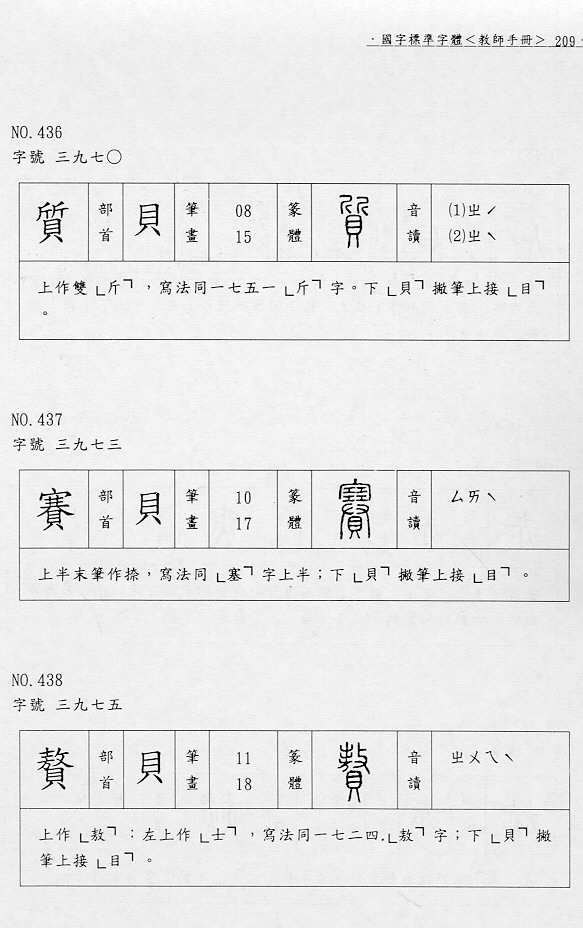 ·國字標準字體<教師手冊> 209·
NO.436
字號 三九七〇
質 部首 貝 筆畫 08 15 篆體 質 音讀 (1)ㄓˊ (2)ㄓˋ
上作雙「斤」,寫法同一七五一「斤」字。下「貝」撇筆上接「目」
。
NO.437
字號 三九七三
賽 部首 貝 筆畫 10 17 篆體 賽 音讀 ㄙㄞˋ
上半末筆作捺,寫法同「塞」字上半;下「貝」撇筆上接「目」。
NO.438
字號 三九七五
贅 部首 貝 筆畫 11 18 篆體 贅 音讀 ㄓㄨㄟˋ
上作「敖」:左上作「士」,寫法同一七二四.「敖」字;下「貝」撇
筆上接「目」。